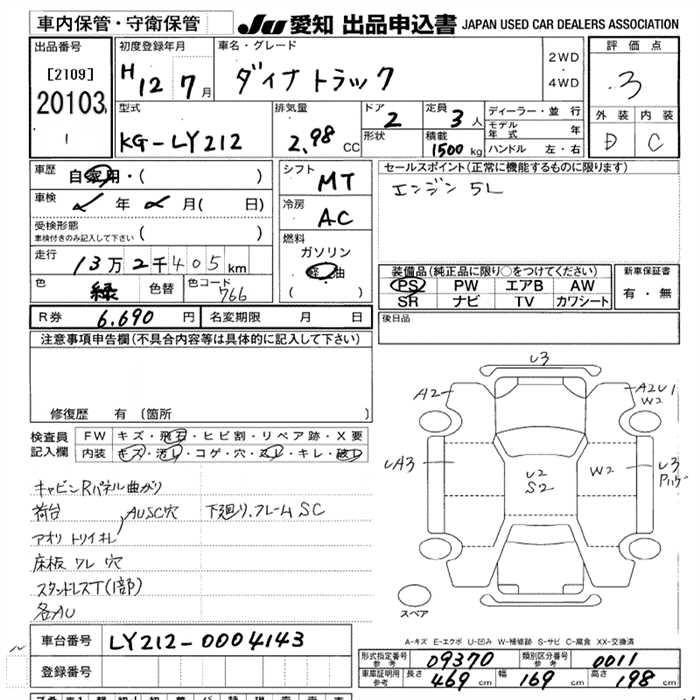 車内保管・守衛保管
JU 愛知 出品申込書 JAPAN USED CAR DEALERS ASSOCIATION
出品番号
[2109]
20103
1
初度登録年月
H 12 7月
車名・グレード
ダイナトラック
2WD
・
4WD
評価点
3
外装 内装
D C
型式
KG-LY212
排気量
2.98 CC
ドア
2
形状
定員
3人
積載
1500kg
ディーラー・並行
モデル年式 年
ハンドル 左・右
車歴 自家用・( )
車検 年 月( 日)
受検形態
車検付きのみ記入して下さい ( )
走行
13万2千405km
色 緑 色替 色コード 766
シフト
MT
冷房
AC
燃料
ガソリン
軽油
( )
セールスポイント(正常に機能するものに限ります)
エンジン 5L
装備品(純正品に限り○をつけてください)
PS PW エアB AW
SR ナビ TV カワシート
新車保証書
有・無
R券 6.690円 名変期限 月 日
後日品
注意事項申告欄(不具合内容等は具体的に記入して下さい)
修復歴 有(箇所 )
検査員記入欄
FW キズ・飛石・ヒビ割・リペア跡・X要
内装 キズ・汚レ・コゲ・穴・スレ・キレ・破レ
キャビンRパネル曲がり
荷台 AUSC穴 下廻り.フレームSC
アオリ トリイオレ
床板 ワレ 穴
スタッドレスT(1部)
各AU
U3
A2
A2U1
W2
UA3
U2
S2
W2
U3
スペア
A-キズ E-エクボ U-凹み W-補修跡 S-サビ C-腐食 XX-交換済
車台番号 LY212-0004143
登録番号
形式指定番号 参考 09370 類別区分番号 参考 0011
車庫証明用 参考 長さ 469cm 幅 169cm 高さ 198cm